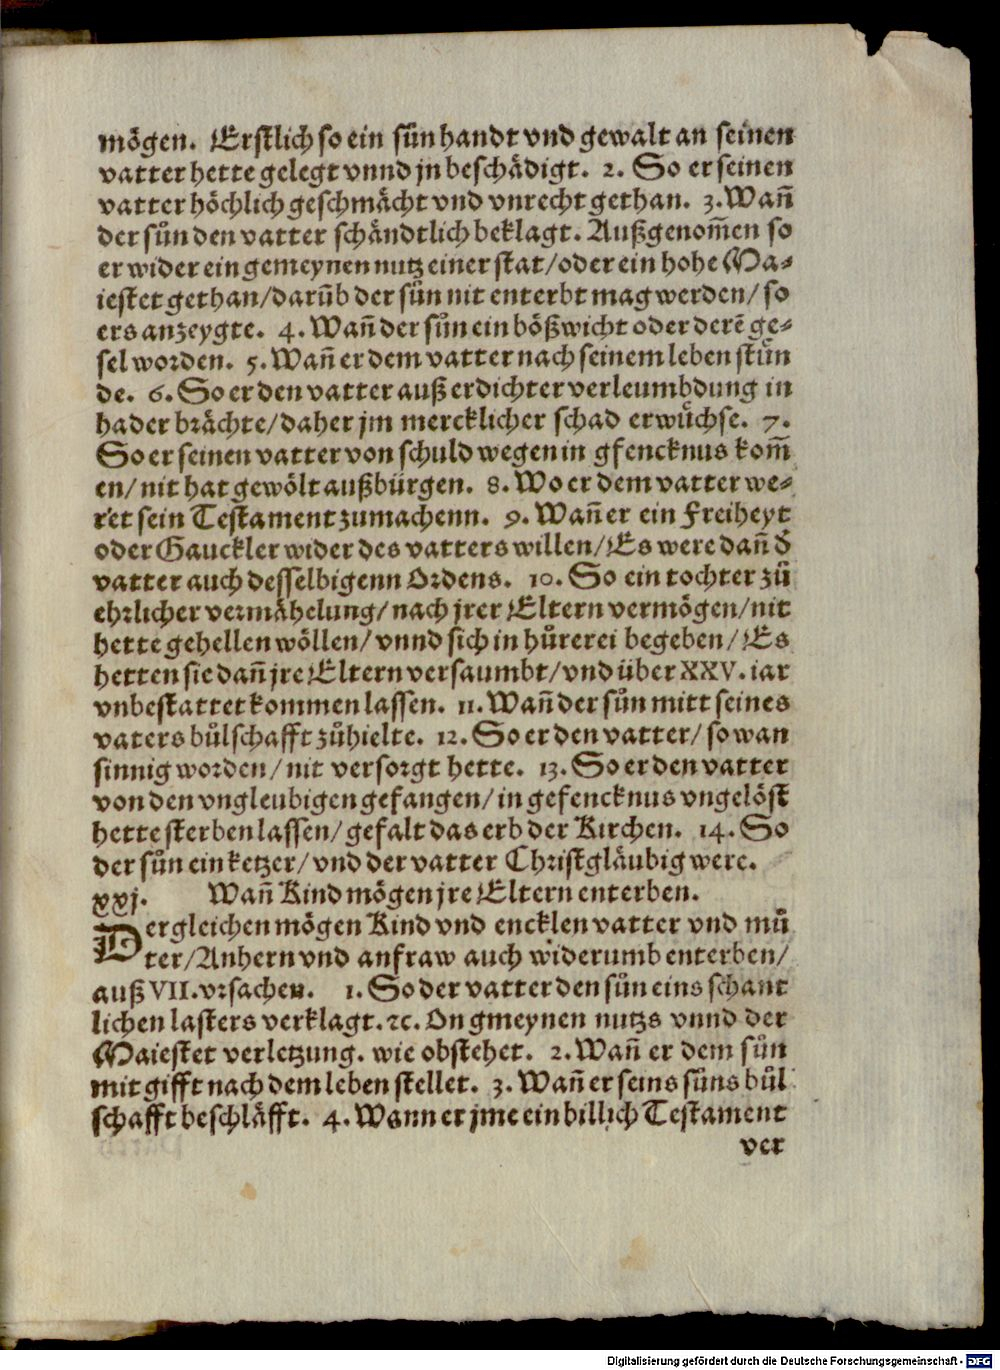 mögen. Erstlich so ein sůn handt vnd gewalt an seinen
vatter hette gelegt vnnd jn beschädigt. 2. So er seinen
vatter höchlich geschmächt vnd vnrecht gethan. 3. Wañ
der sůn den vatter schändtlich beklagt. Außgenom̃en so
er wider ein gemeynen nutz einer stat/oder ein hohe Ma-
iestet gethan/darũb der sůn nit enterbt mag werden/so
ers anzeygte. 4. Wañ der sůn ein bößwicht oder derẽ ge-
sel worden. 5. Wañ er dem vatter nach seinem leben stůn
de. 6. So er den vatter auß erdichter verleumbdung in
hader brächte/daher jm mercklicher schad erwüchse. 7.
So er seinen vatter von schuld wegen in gfencknus kom̃
en/nit hat gewölt außbürgen. 8. Wo er dem vatter we-
ret sein Testament zumachenn. 9. Wañ er ein Freiheyt
oder Gauckler wider des vatters willen/Es were dañ d̕
vatter auch desselbigenn Ordens. 10. So ein tochter zů
ehrlicher vermähelung/nach jrer Eltern vermögen/nit
hette gehellen wöllen/vnnd sich in hůrerei begeben/Es
hetten sie dañ jre Eltern versaumbt/vnd über XXV. iar
vnbestattet kommen lassen. 11. Wañ der sůn mitt seines
vaters bůlschafft zůhielte. 12. So er den vatter/so wan
sinnig worden/nit versorgt hette. 13. So er den vatter
von den vngleubigen gefangen/in gefencknus vngelöst
hette sterben lassen/gefalt das erb der Kirchen. 14. So
der sůn ein ketzer/vnd der vatter Christgläubig were.
xxj. Wañ Kind mögen jre Eltern enterben.
Dergleichen mögen Kind vnd encklen vatter vnd mů
ter/Anhern vnd anfraw auch widerumb enterben/
auß VII. vrsachen. 1. So der vatter den sůn eins schant
lichen lasters verklagt. ⁊c. On gmeynen nutzs vnnd der
Maiestet verletzung. wie obstehet. 2. Wañ er dem sůn
mit gifft nach dem leben stellet. 3. Wañ er seins sůns bůl
schafft beschläfft. 4. Wann er jme ein billich Testament
ver
Digitalisierung gefördert durch die Deutsche Forschungsgemeinschaft - DFG